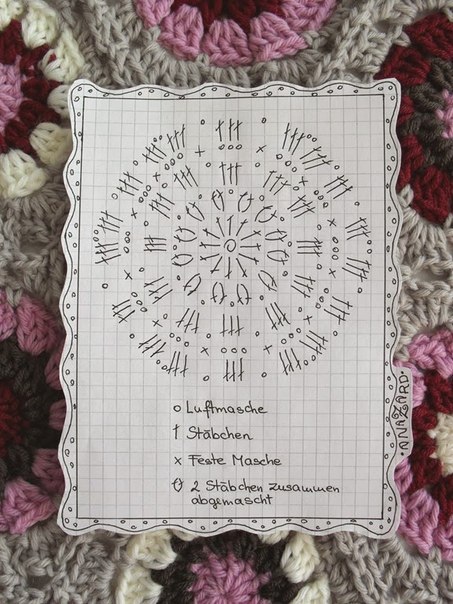 o Luftmasche
† Stäbchen
x Feste Masche
2 Stäbchen zusammen
abgemascht
ANNAZARD